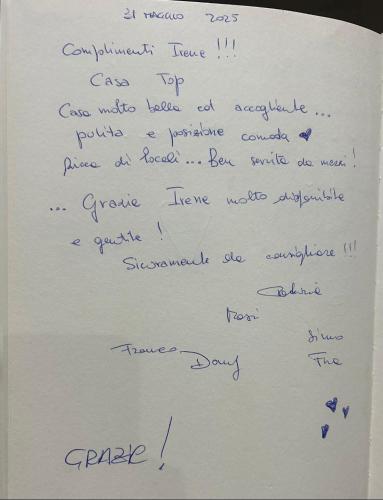 31 MAGGIO 2025
Complimenti Irene !!!
Casa Top
Casa molto bella ed accogliente...
pulita e posizione comoda
Ricca di locali... Ben servita da mezzi!
... Grazie Irene molto disponibile
e gentile !
Sicuramente da consigliare !!!
Rosi
Simo
Franco
GRAZIE!